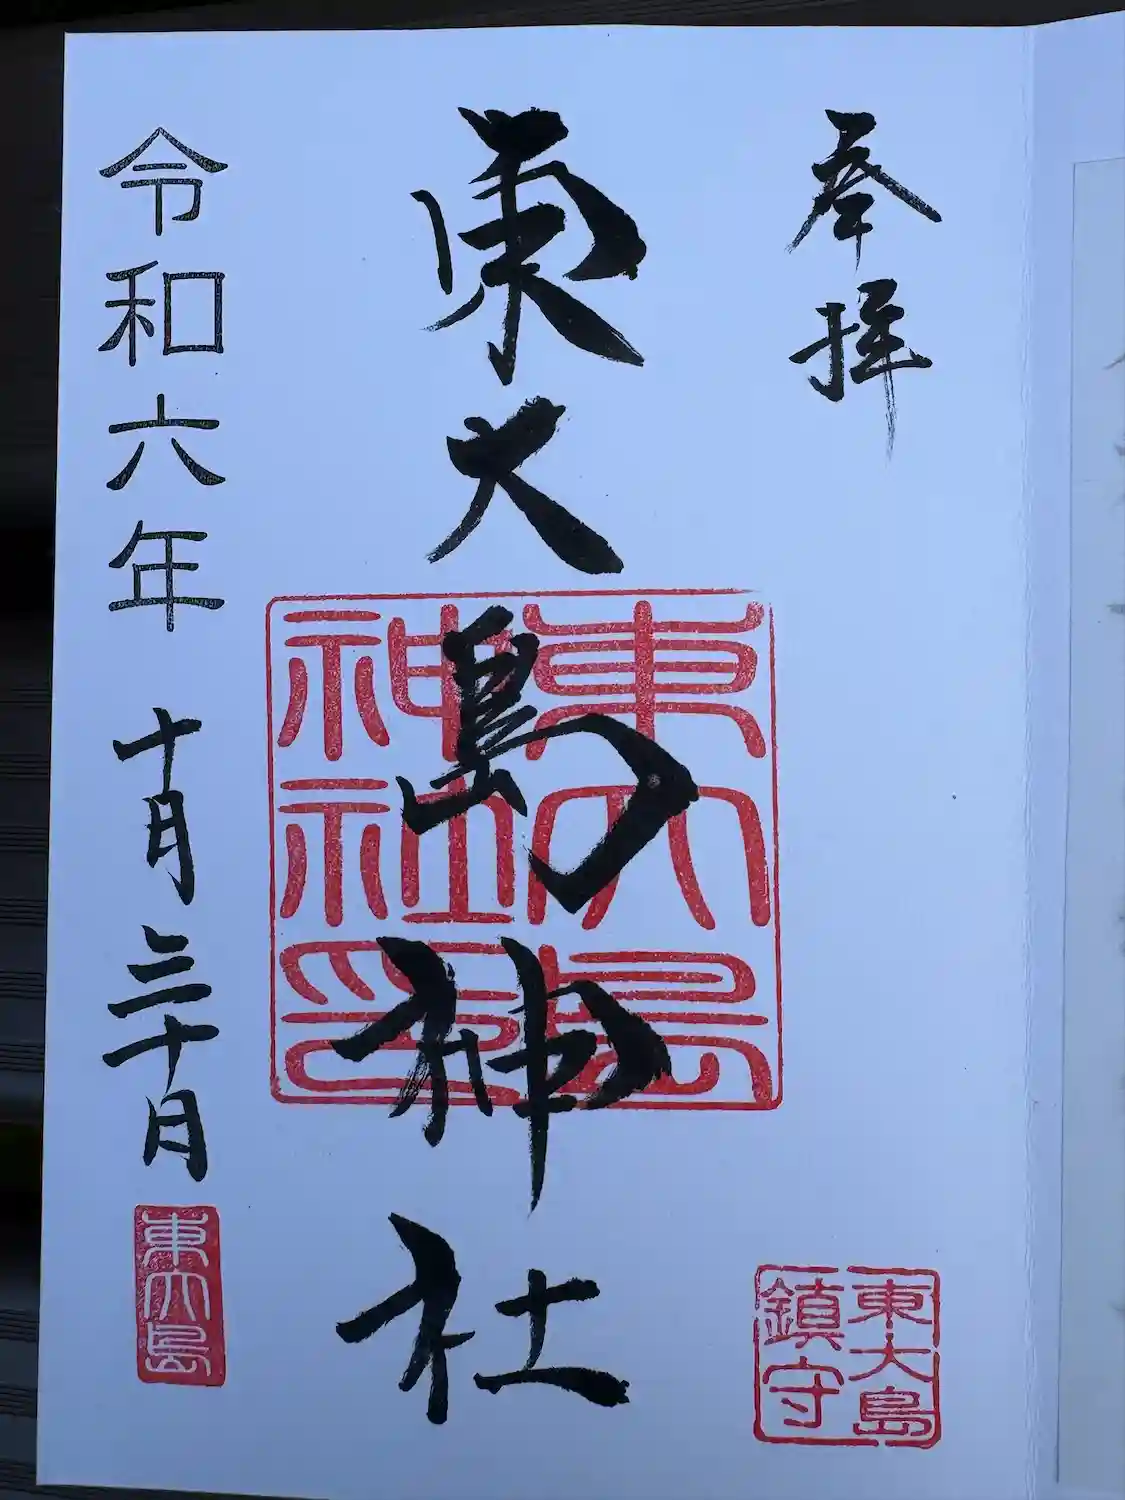 奉拝
東大島神社
東大島神社印
東大島
鎮守
令和六年十月三十日
東大島